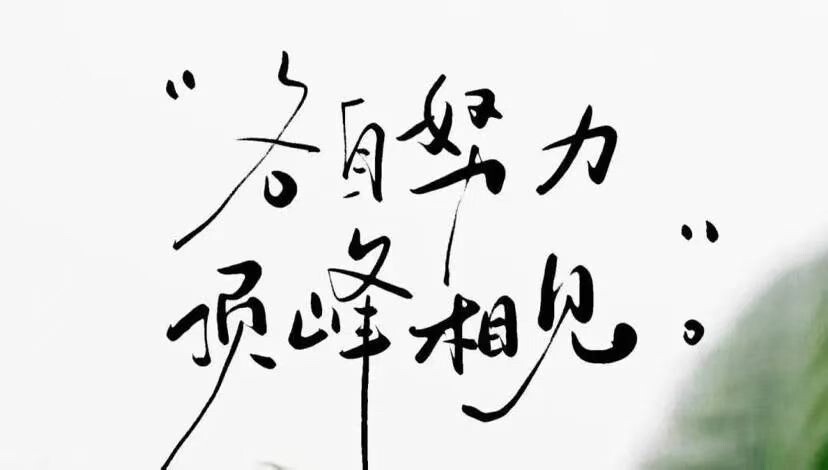 “各自努力
顶峰相见”。